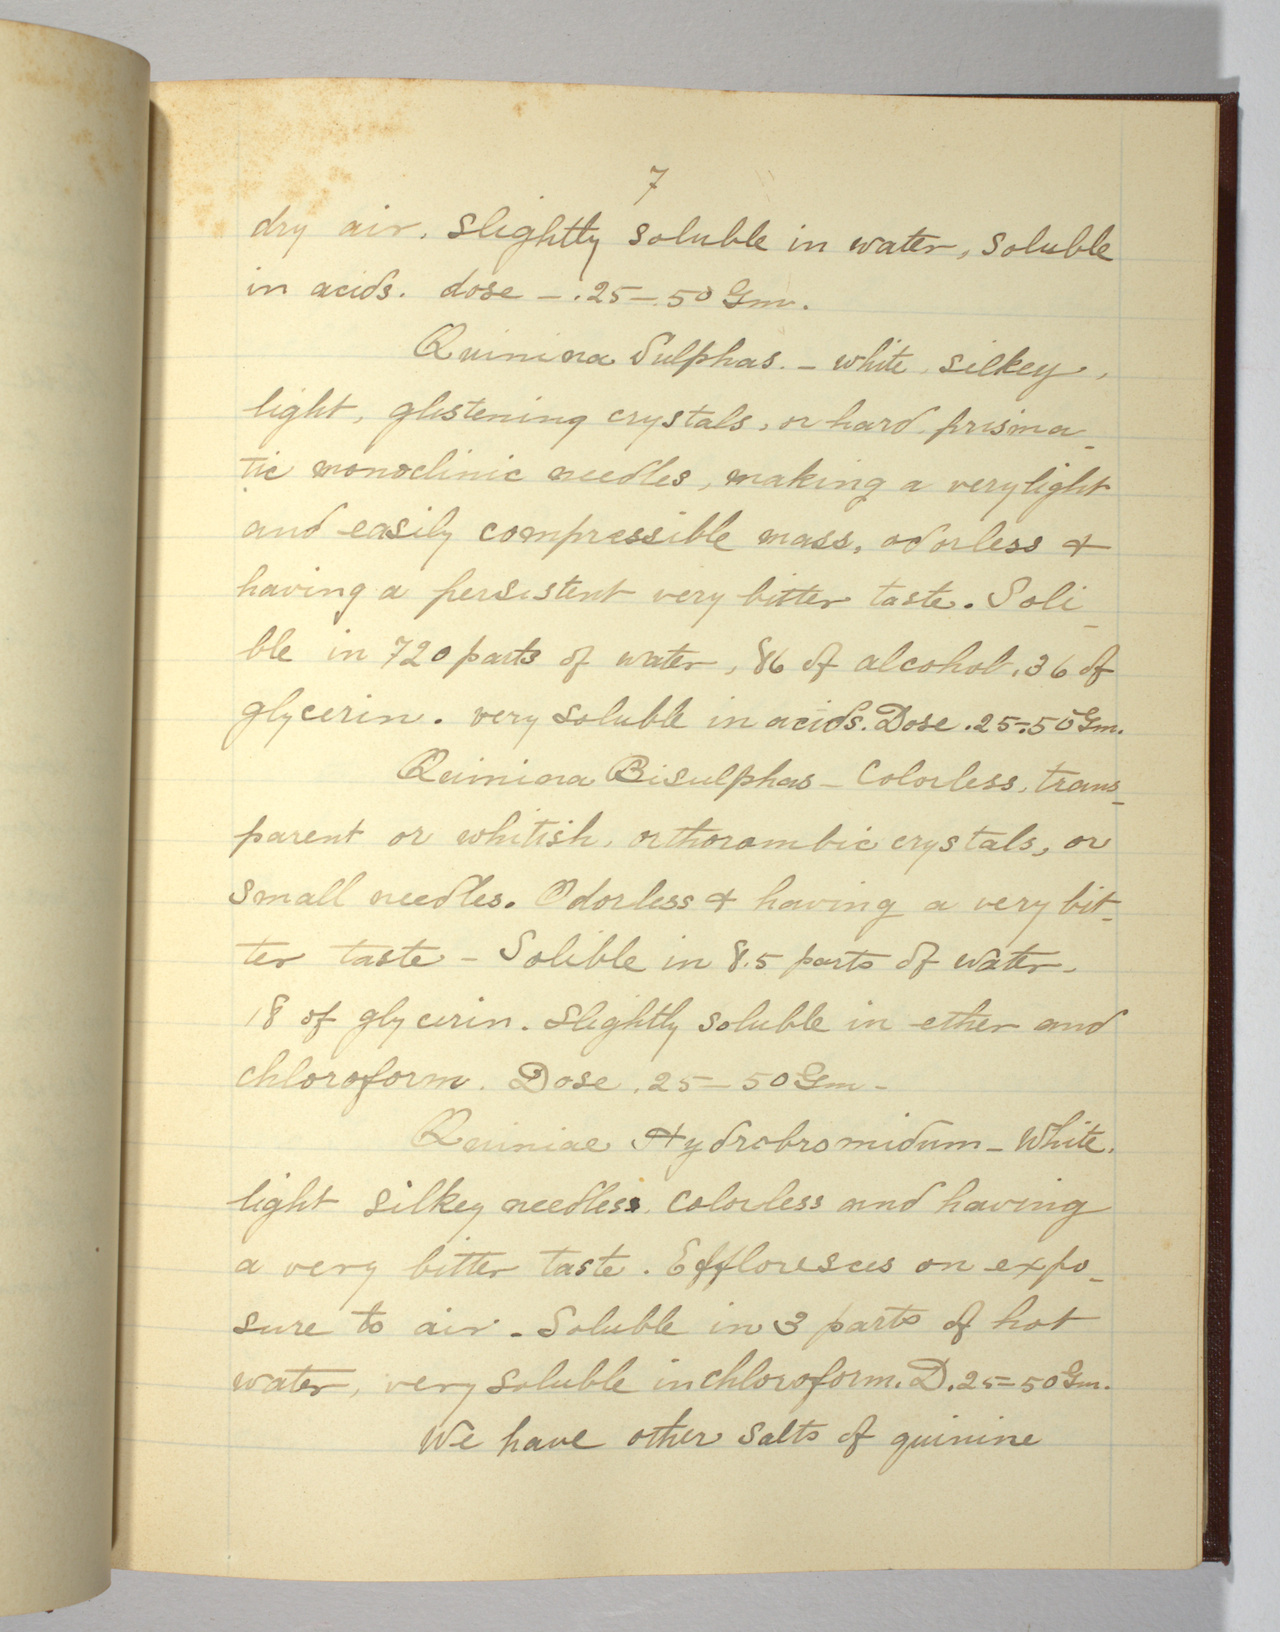 7
dry air. Slightly soluble in water, soluble
in acids. dose – .25–.50 Gm.
Quinina Sulphas. – white, silkey,
light, glistening crystals, or hard prisma-
tic monoclinic needles, making a very light
and easily compressible mass, odorless &
having a persistent very bitter taste. Soli-
ble in 720 parts of water, 86 of alcohol, 36 of
glycerin. very soluble in acids. Dose .25–.50 Gm.
Quinina Bisulphas – Colorless, trans-
parent or whitish, orthorombic crystals, or
small needles. Odorless & having a very bit-
ter taste – Solible in 8.5 parts of water.
18 of glycerin. Slightly soluble in ether and
chloroform. Dose .25–50 Gm –
Quiniae Hydrobromidum – White,
light silkey needles, colorless and having
a very bitter taste. Effloresces on expo-
sure to air – Soluble in 3 parts of hot
water, very soluble in chloroform. D. .25–50 Gm.
We have other salts of quinine